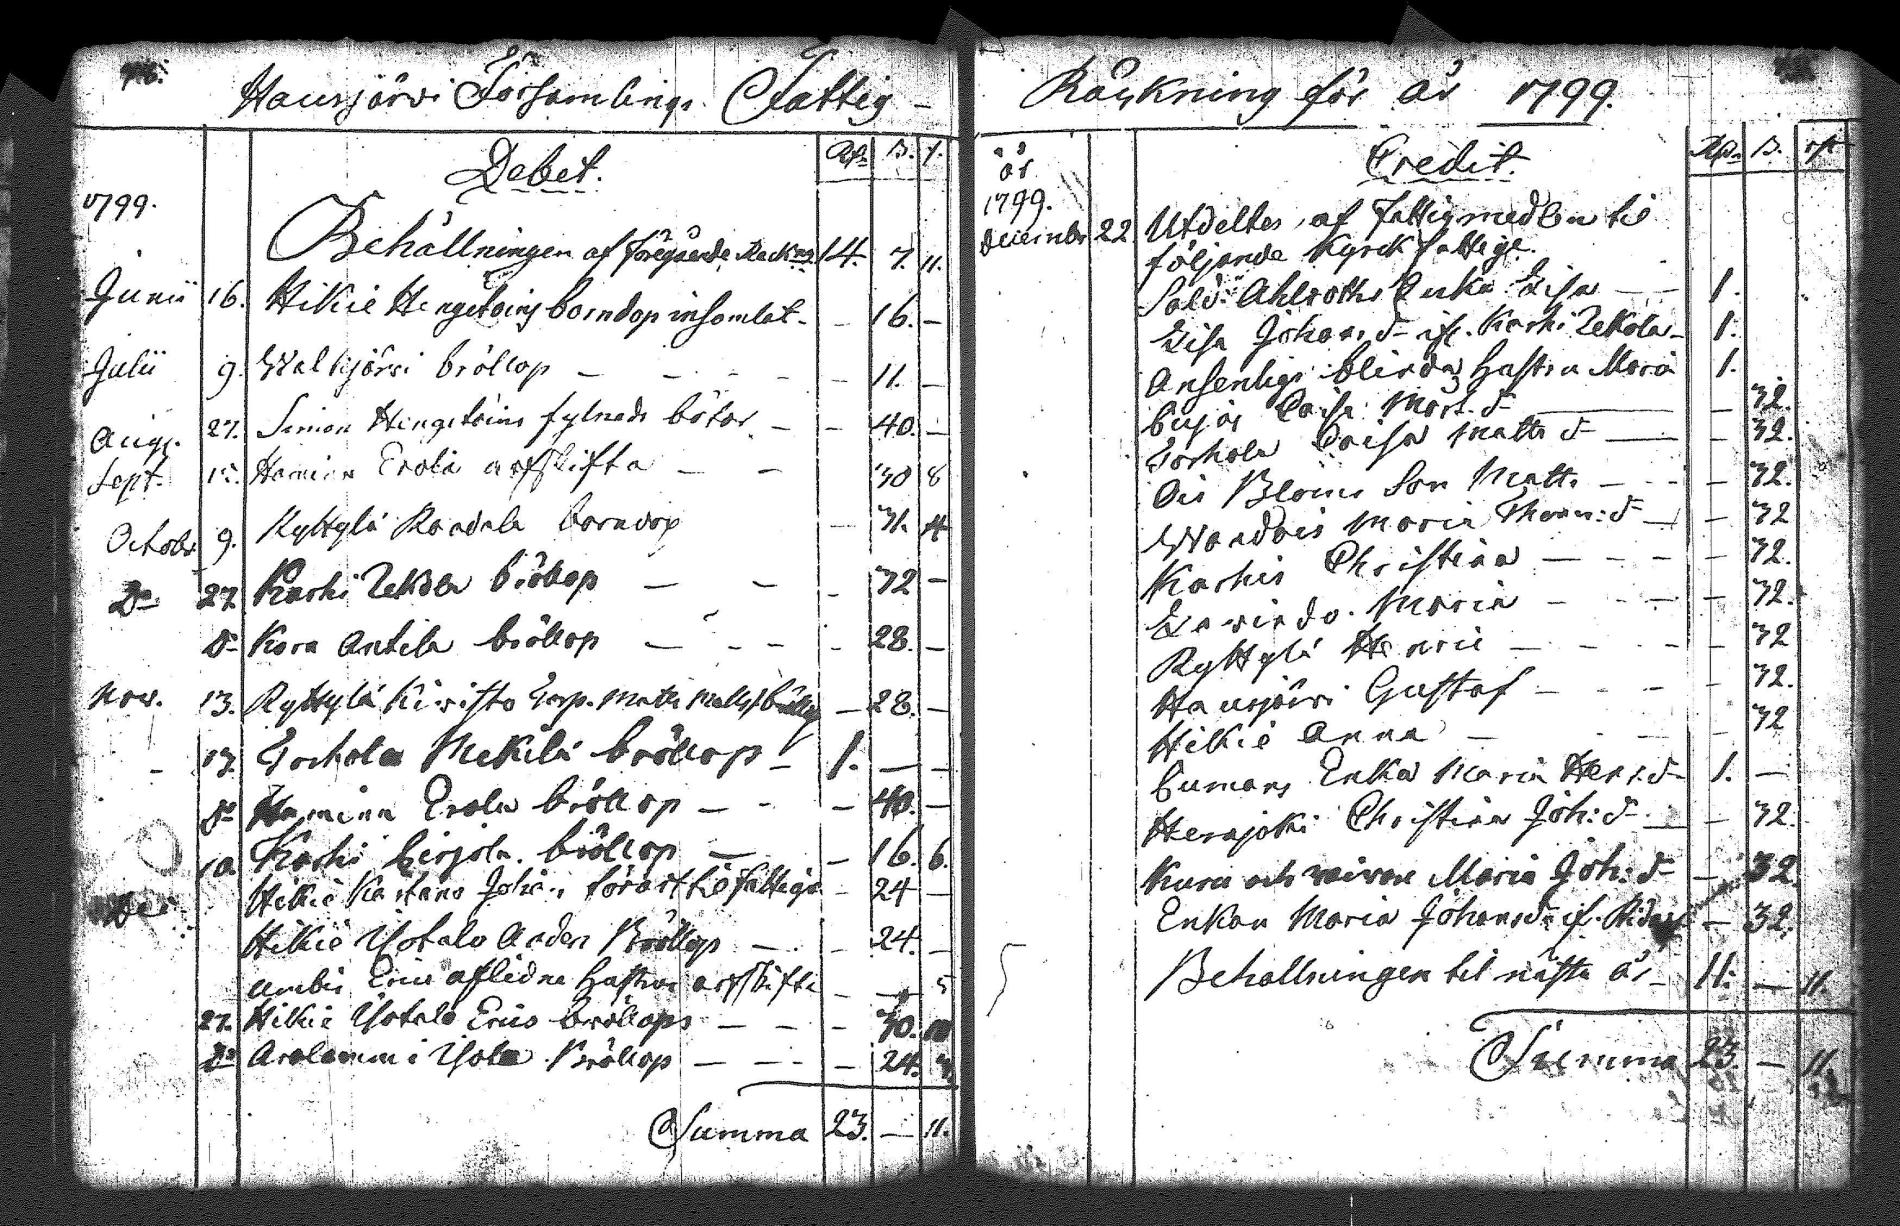 Hausjärvi Församlings Fattig-
Debet. Rdr B. r.
1799.
Behållningen af föregående Räkng. 14. 7. 11.
Junii 16. Hikie Hengstöins barndop insamlat - - 16. -
Julii 9. Walkjärvi bröllop - - - - 11. -
Aug. 27. Simon Hengstöins fylneds böter - - 40. -
Sept. 15. Hamina Erola arfskifte - - 30 8
Octobr 9. Ryttylä Randala barndop - 31. 4
Do 27. Karhi Uckola bröllop - - - 32 -
do Kara Antila bröllop - - - - 28. -
Nov. 13. Ryttylä Kiristo Matts bröllop - 28. -
- 17. Torhola Mekilä bröllop - 1. - -
do Hamina Erola bröllop - - - 40. -
Dec. 10. Karhi Girjola bröllop - - 16. 6.
Hikie Kartano Johan til fattiga - 24 -
Hikie Yotalo Anders Bröllop - - 24. -
Erics aflidna hustru arfskifte - - 5
27. Hikie Yotalo Erics bröllop - - - 30. 10
Do Arolammi Yotu Bröllop - - - - 24. 3.
Summa 23. - 11.
Räkning för år 1799.
år Credit. Rdr B. r
1799.
December 22 Utdeltes af fattigmedlen til
följande Kyrk fattige.
Sold: Ahlroths Enka Lisa - - 1.
Lisa Johans d- if. Karhi Uckola - 1.
Ansenligt blinda hustru Maria 1.
Caisa Mårt. d- - 32.
Torhola Caisa Matts d - - 32.
Ois Bloms Son Matts - - - - 32.
Maria Thom: d - - 32
Karhis Christina - - - - - 32.
Maria - - - - 32.
Ryttylä Henric - - - - 32
Hausjärvi Gustaf - - - - 32.
Hikie Anna - - - - 32
Enka Maria Henr. d- 1. -
Herajoki Christina Joh: d- - - 32.
Kura och Maria Joh: d- - 32.
Enkan Maria Johans d- if. - 32.
Behållningen til nästa år - 11. - 11.
Summa 23. - 11.